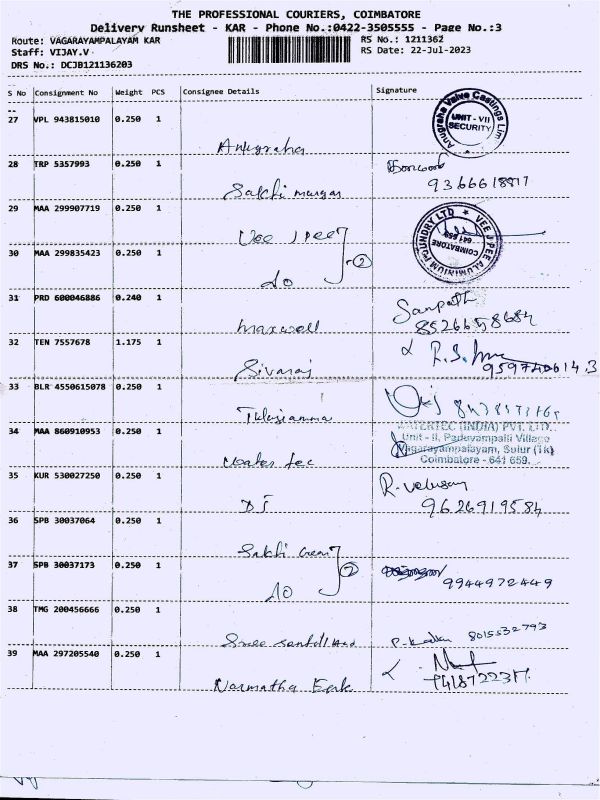 THE PROFESSIONAL COURIERS, COIMBATORE
Delivery Runsheet - KAR - Phone No.:0422-3505555 - Page No.:3
Route: VAGARAYAMPALAYAM KAR RS No.: 1211362
Staff: VIJAY.V RS Date: 22-Jul-2023
DRS No.: DCJB121136203
S No Consignment No Weight PCS Consignee Details Signature
27 VPL 943815010 0.250 1
Anugraha Valve Castings Lim
UNIT - VII
SECURITY
Anugraha
28 TRP 5357993 0.250 1
Sakthi murugan
29 MAA 299907719 0.250 1
Vee J Pee
VEE J PEE ALUMINIUM FOUNDRY LTD
COIMBATORE
641 659
30 MAA 299835423 0.250 1
do 2
31 PRD 600046886 0.240 1
Sampath
maxwell 8526658684
32 TEN 7557678 1.175 1
Sivaraj
33 BLR 4550615078 0.250 1
34 MAA 860910953 0.250 1
WATERTEC (INDIA) PVT. LTD.
Unit - II, Paduvampalli Village
Vagarayampalayam, Sulur (Tk)
Coimbatore - 641 659.
Water tec
35 KUR 530027250 0.250 1
DJ 9626919584
36 SPB 30037064 0.250 1
Sakthi
37 SPB 30037173 0.250 1
do 2 9944972449
38 TMG 200456666 0.250 1
Sree 8015532793
39 MAA 297205540 0.250 1
Narmatha